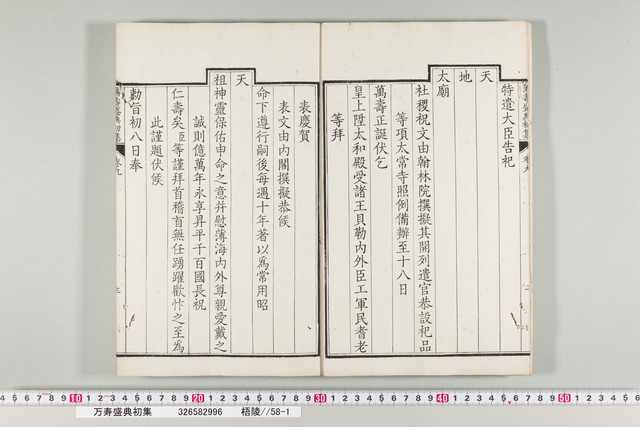 特遣大臣告祀
天
地
太廟
社稷祝文由翰林院撰擬其開列遣官恭設祀品
等項太常寺照例備辦至十八日
萬壽正誕伏乞
皇上陞太和殿受諸王貝勒內外臣工軍民耆老
等拜
表慶賀
表文由內閣撰擬恭候
命下遵行嗣後每遇十年著以為常用昭
天
祖神靈保佑申命之意幷慰薄海內外尊親愛戴之
誠則億萬年永享昇平千百國長祝
仁壽矣臣等謹拜首稽首無任踴躍歡忭之至為
此謹題伏候
勅旨初八日奉
10 20 30 40 50
万寿盛典初集 326582996 梧陵//58-1